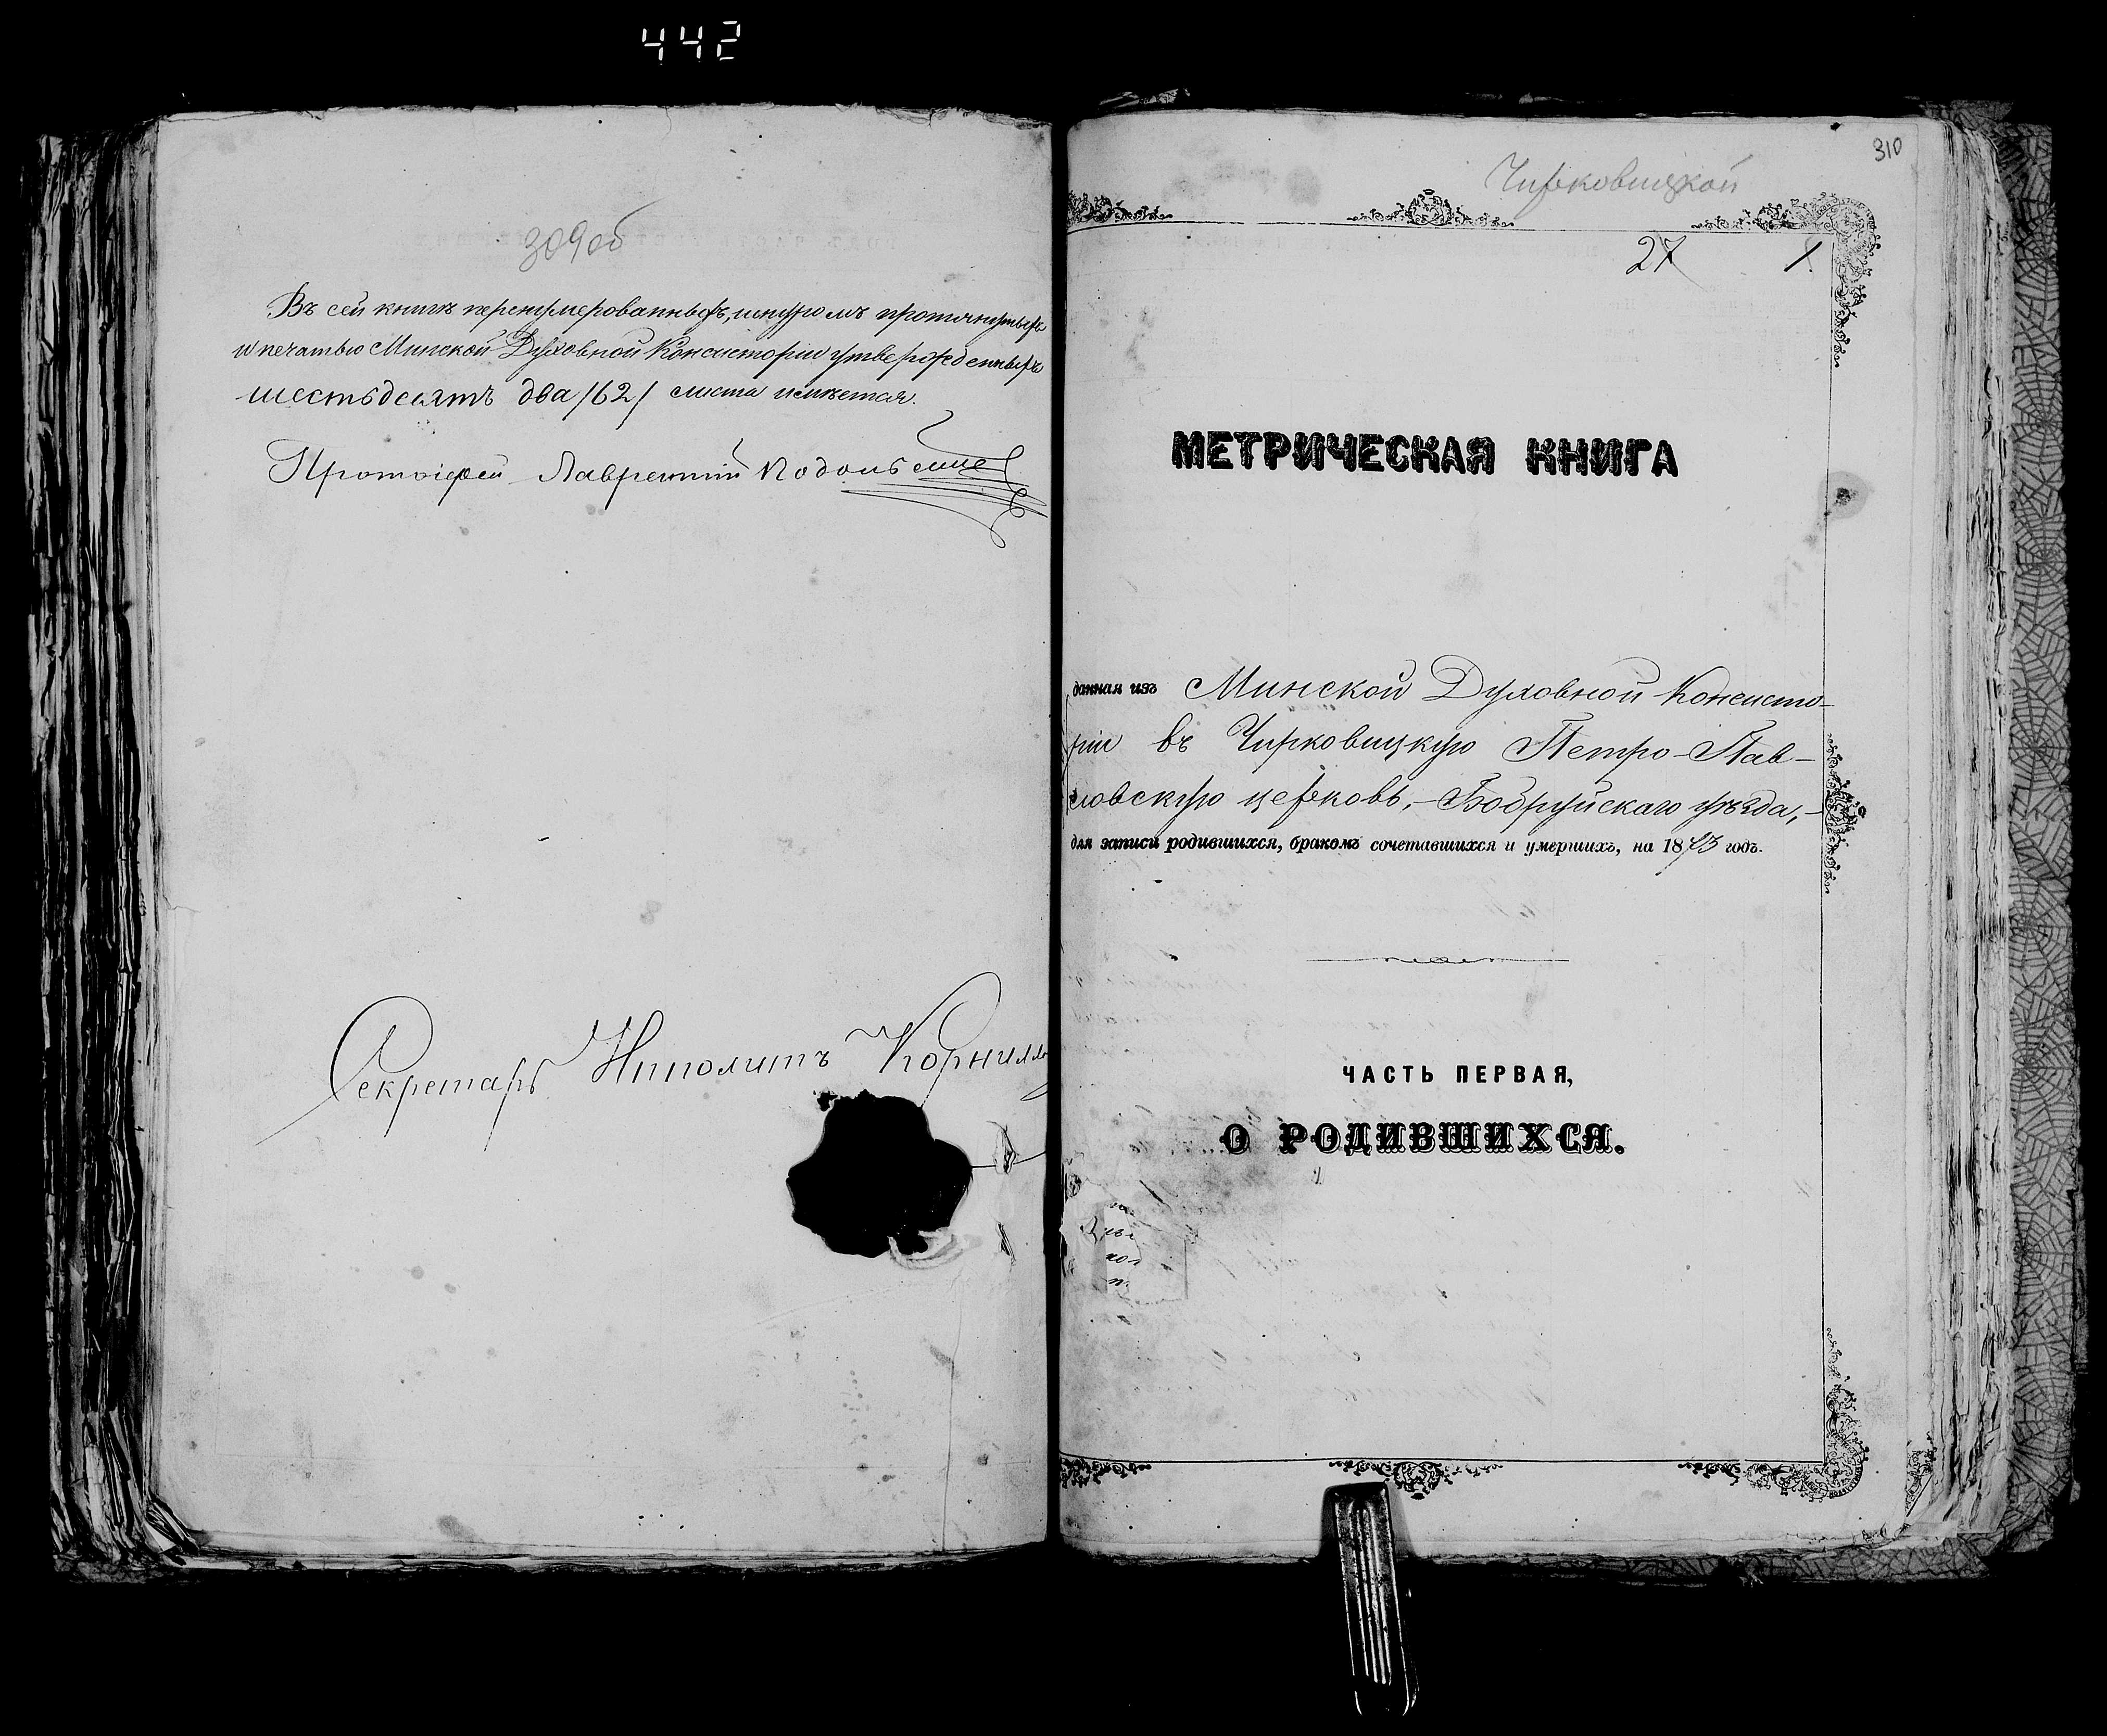 442
309об
Въ сей книгѣ перенумерованныхъ, шнуромъ протянутыхъ
и печатью Минской Духовной Консисторіи утвержденныхъ
шестьдесятъ два /62/ листа имѣется.
Протоіерей Лаврентій Подольскій
Секретарь Ипполитъ Корнилл
310
Чирковицкой
27 1
МЕТРИЧЕСКАЯ КНИГА
данная изъ Минской Духовной Консисто-
ріи въ Чирковицкую Петро-Пав-
ловскую церковь, - Бобруйскаго уѣзда, -
для записи родившихся, бракомъ сочетавшихся и умершихъ, на 1873 годъ.
ЧАСТЬ ПЕРВАЯ,
О РОДИВШИХСЯ.